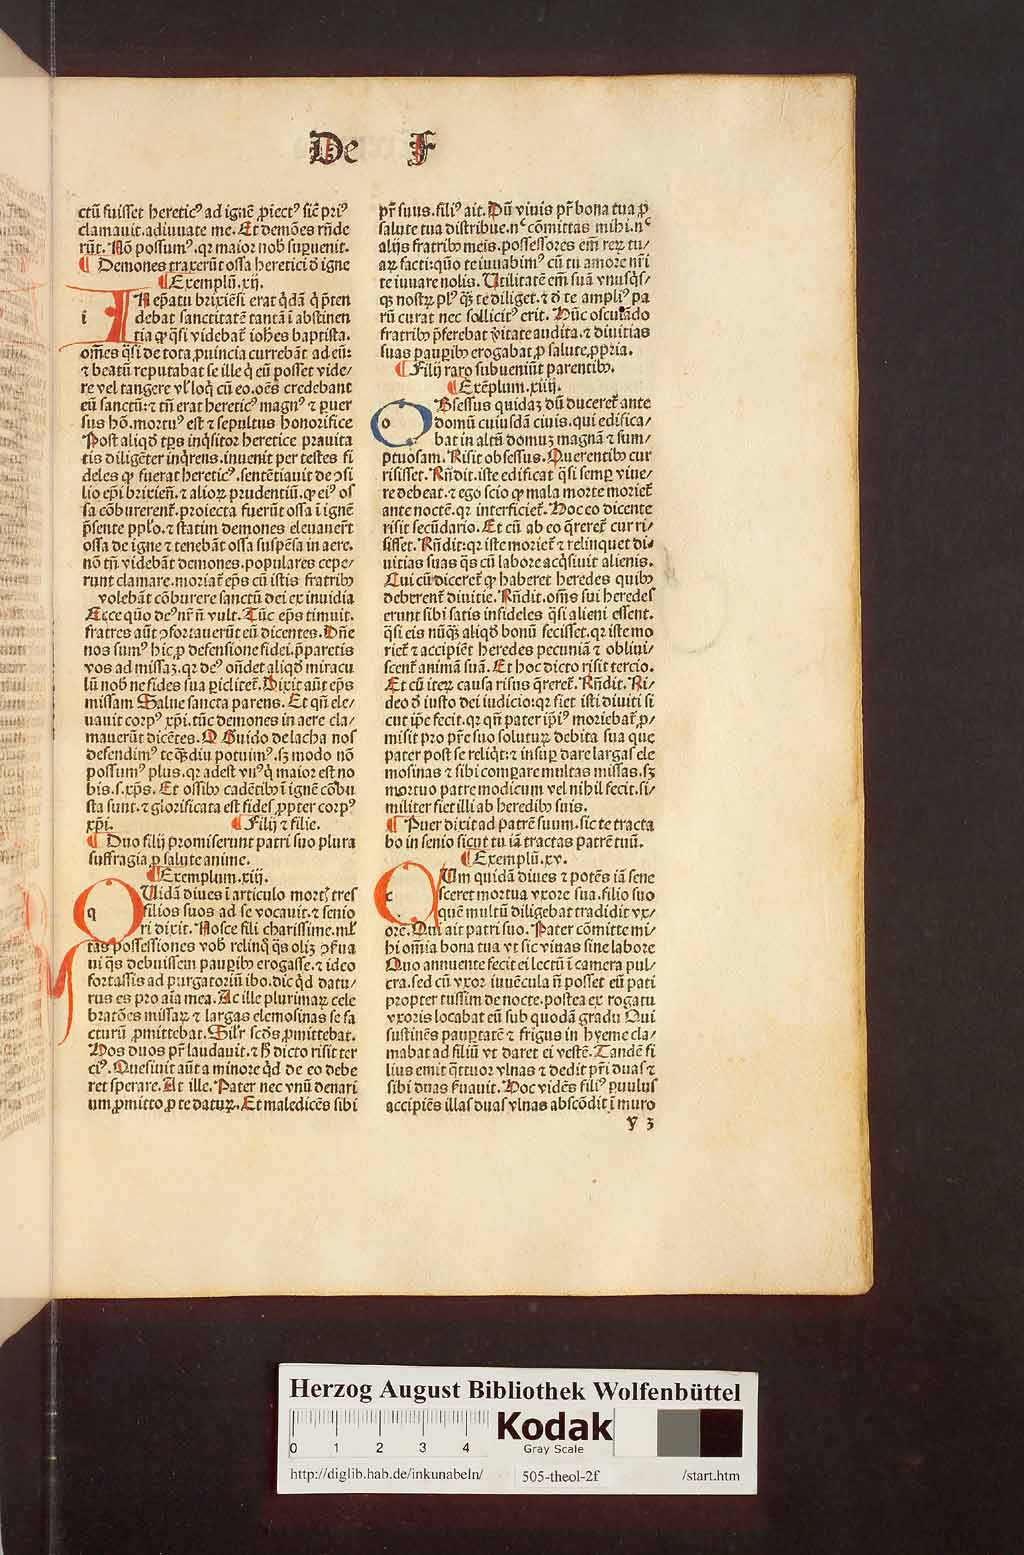 De F
ctū fuisset heretic⁹ ad ignē ꝓiect⁹ sic̄ pri⁹
clamauit.adiuuate me. Et demōes rn̄de
rūt. Nō possum⁹.qr maior nob̄ suꝑuenit.
¶ Demones traxerūt ossa heretici d̄ igne
¶ Exemplū.xij.
IN ep̄atu brixiēsi erat q̄dā q̄ p̄ten
i debat sanctitatē tantā ī abstinen
tia ꝙ q̄si videbat̄ ioh̄es baptista.
om̄es q̄si de tota ꝓuincia currebāt ad eū:
⁊ beatū reputabat se ille q̄ eū posset vide/
re vel tangere vl̄ loq̄ cū eo.oēs credebant
eū sanctū:⁊ tn̄ erat heretic⁹ magn⁹ ⁊ ꝑuer
sus hō.mortu⁹ est ⁊ sepultus honorifice
Post aliqd̄ tp̄s inq̄sitor heretice prauita
tis diligēter inq̄rens.inuenit per testes fi
deles ꝙ fuerat heretic⁹.sentētiauit de ꝯsi
lio ep̄i brixien̄.⁊ alioꝝ prudentiū.ꝙ ei⁹ os
sa cōburerent̄.proiecta fuerūt ossa ī ignē
p̄sente pp̄lo.⁊ statim demones eleuauer̄t
ossa de igne ⁊ tenebāt ossa suspēsa in aere.
nō tn̄ videbāt demones.populares cepe/
runt clamare.moriat̄ ep̄s cū istis fratribꝫ
volebāt cōburere sanctū dei ex inuidia
Ecce quō de⁹ nr̄ n̄ vult. Tūc ep̄s timuit.
fratres aūt ꝯfortauerūt eū dicentes. Dn̄e
nos sum⁹ hic ꝓ defensione fidei.p̄paretis
vos ad missaꝫ.qr de⁹ on̄det aliqd̄ miracu
lū nob̄ ne fides sua ꝑiclitet̄. Dixit aūt ep̄s
missam Salue sancta parens. Et qn̄ ele/
uauit corp⁹ xp̄i.tūc demones in aere cla/
mauerūt dicētes. O Guido de lacha nos
defendim⁹ te q̄ꝫdiu potuim⁹.sꝫ modo nō
possum⁹ plus.qr adest vn⁹ q̄ maior est no
bis.s.xp̄s. Et ossibꝫ cadētibꝫ ī ignē cōbu
sta sunt.⁊ glorificata est fides ꝓpter corp⁹
xp̄i. ¶ Filij ⁊ filie.
¶ Duo filij promiserunt patri suo plura
suffragia ꝓ salute anime.
¶ Exemplum.xiij.
QUidā diues ī articulo mort̄ tres
q filios suos ad se vocauit.⁊ senio
ri dixit. Nosce fili charissime.ml̄
tas possessiones vob̄ relinq̄ q̄s olīꝫ ꝯꝑua
ui q̄s debuissem pauꝑibꝫ erogasse.⁊ ideo
fortassis ad purgatoriū ibo.dic qd̄ datu/
rus es pro aīa mea. Ac ille plurimaꝝ cele
bratōes missaꝝ ⁊ largas elemosinas se fa
cturū ꝓmittebat. Sil'r scd̄s ꝓmittebat.
Hos duos pr̄ laudauit.⁊ h̄ dicto risit ter
ci⁹. Quesiuit aūt a minore qd̄ de eo debe
ret sperare. At ille. Pater nec vnū denari
um ꝓmitto ꝓ te datuꝝ. Et maledicēs sibi
pr̄ suus.fili⁹ ait. Dū viuis pr̄ bona tua ꝓ
salute tua distribue.nᶜ cōmittas mihi.nᶜ
alijs fratribꝫ meis.possessores em̄ reꝝ tu/
aꝝ facti:quō te iuuabim⁹ cū tu amore nr̄i
te iuuare nolis. Utilitatē em̄ suā vnusq̄s/
qꝫ nostꝝ pl⁹ q̄ꝫ te diliget.⁊ d̄ te ampli⁹ pa
rū curat nec sollicit⁹ erit. Hūc osculādo
fratribꝫ p̄ferebat v̄itate audita.⁊ diuitias
suas pauꝑibꝫ erogabat ꝓ salute ꝓpria.
¶ Filij raro subueniūt parentibꝫ.
¶ Exēplum.xiiij.
OBsessus quidaꝫ dū duceret̄ ante
o domū cuiusdā ciuis.qui edifica/
bat in altū domuꝫ magnā ⁊ sum/
ptuosam. Risit obsessus. Querentibꝫ cur
risisset. Rn̄dit.iste edificat q̄si semꝑ viue/
re debeat.⁊ ego scio ꝙ mala morte moriet̄
ante noctē.qr interficiet̄. Hoc eo dicente
risit secūdario. Et cū ab eo q̄reret̄ cur ri/
sisset. Rn̄dit:qr iste moriet̄ ⁊ relinquet di/
uitias suas q̄s cū labore acq̄siuit alienis.
Cui cū diceret̄ ꝙ haberet heredes quibꝫ
deberent̄ diuitie. Rn̄dit.om̄s sui heredes
erunt sibi satis infideles q̄si alieni essent.
q̄si eis nūq̄ꝫ aliqd̄ bonū fecisset.qr iste mo
riet̄ ⁊ accipiēt heredes pecuniā ⁊ obliui/
scent̄ animā suā. Et hoc dicto risit tercio.
Et cū iteꝝ causa risus q̄reret̄. Rn̄dit. Ri/
deo d̄ iusto dei iudicio:qr fiet isti diuiti si
cut ip̄e fecit.qr qn̄ pater ip̄i⁹ moriebat̄ ꝓ/
misit pro pr̄e suo solutuꝝ debita sua que
pater post se reliq̄t:⁊ insuꝑ dare largas ele
mosinas ⁊ sibi comparare multas missas.sꝫ
mortuo patre modicum vel nihil fecit.si/
militer fiet illi ab heredibꝫ suis.
¶ Puer dixit ad patrē suum.sic te tracta
bo in senio sicut tu iā tractas patrē tuū.
¶ Exemplū.xv.
CUm quidā diues ⁊ potēs iā sene
c sceret mortua vxore sua.filio suo
quē multū diligebat tradidit vx/
ore. Qui ait patri suo. Pater cōmitte mi/
hi om̄ia bona tua vt sic viuas sine labore
Quo annuente fecit ei lectū ī camera pul/
cra.sed cū vxor iuuēcula n̄ posset eū pati
propter tussim de nocte.postea ex rogatu
vxoris locabat eū sub quodā gradu Qui
sustinēs pauꝑtatē ⁊ frigus in hyeme cla/
mabat ad filiū vt daret ei vestē. Tandē fi
lius emit q̄ttuor vlnas ⁊ dedit pr̄i duas ⁊
sibi duas ẜuauit. Hoc vidēs fili⁹ ꝑuulus
accipiēs illas duas vlnas abscōdit ī muro
y 3
Herzog August Bibliothek Wolfenbüttel
0 1 2 3 4
Kodak
Gray Scale
http://diglib.hab.de/inkunabeln/ 505-theol-2f /start.htm